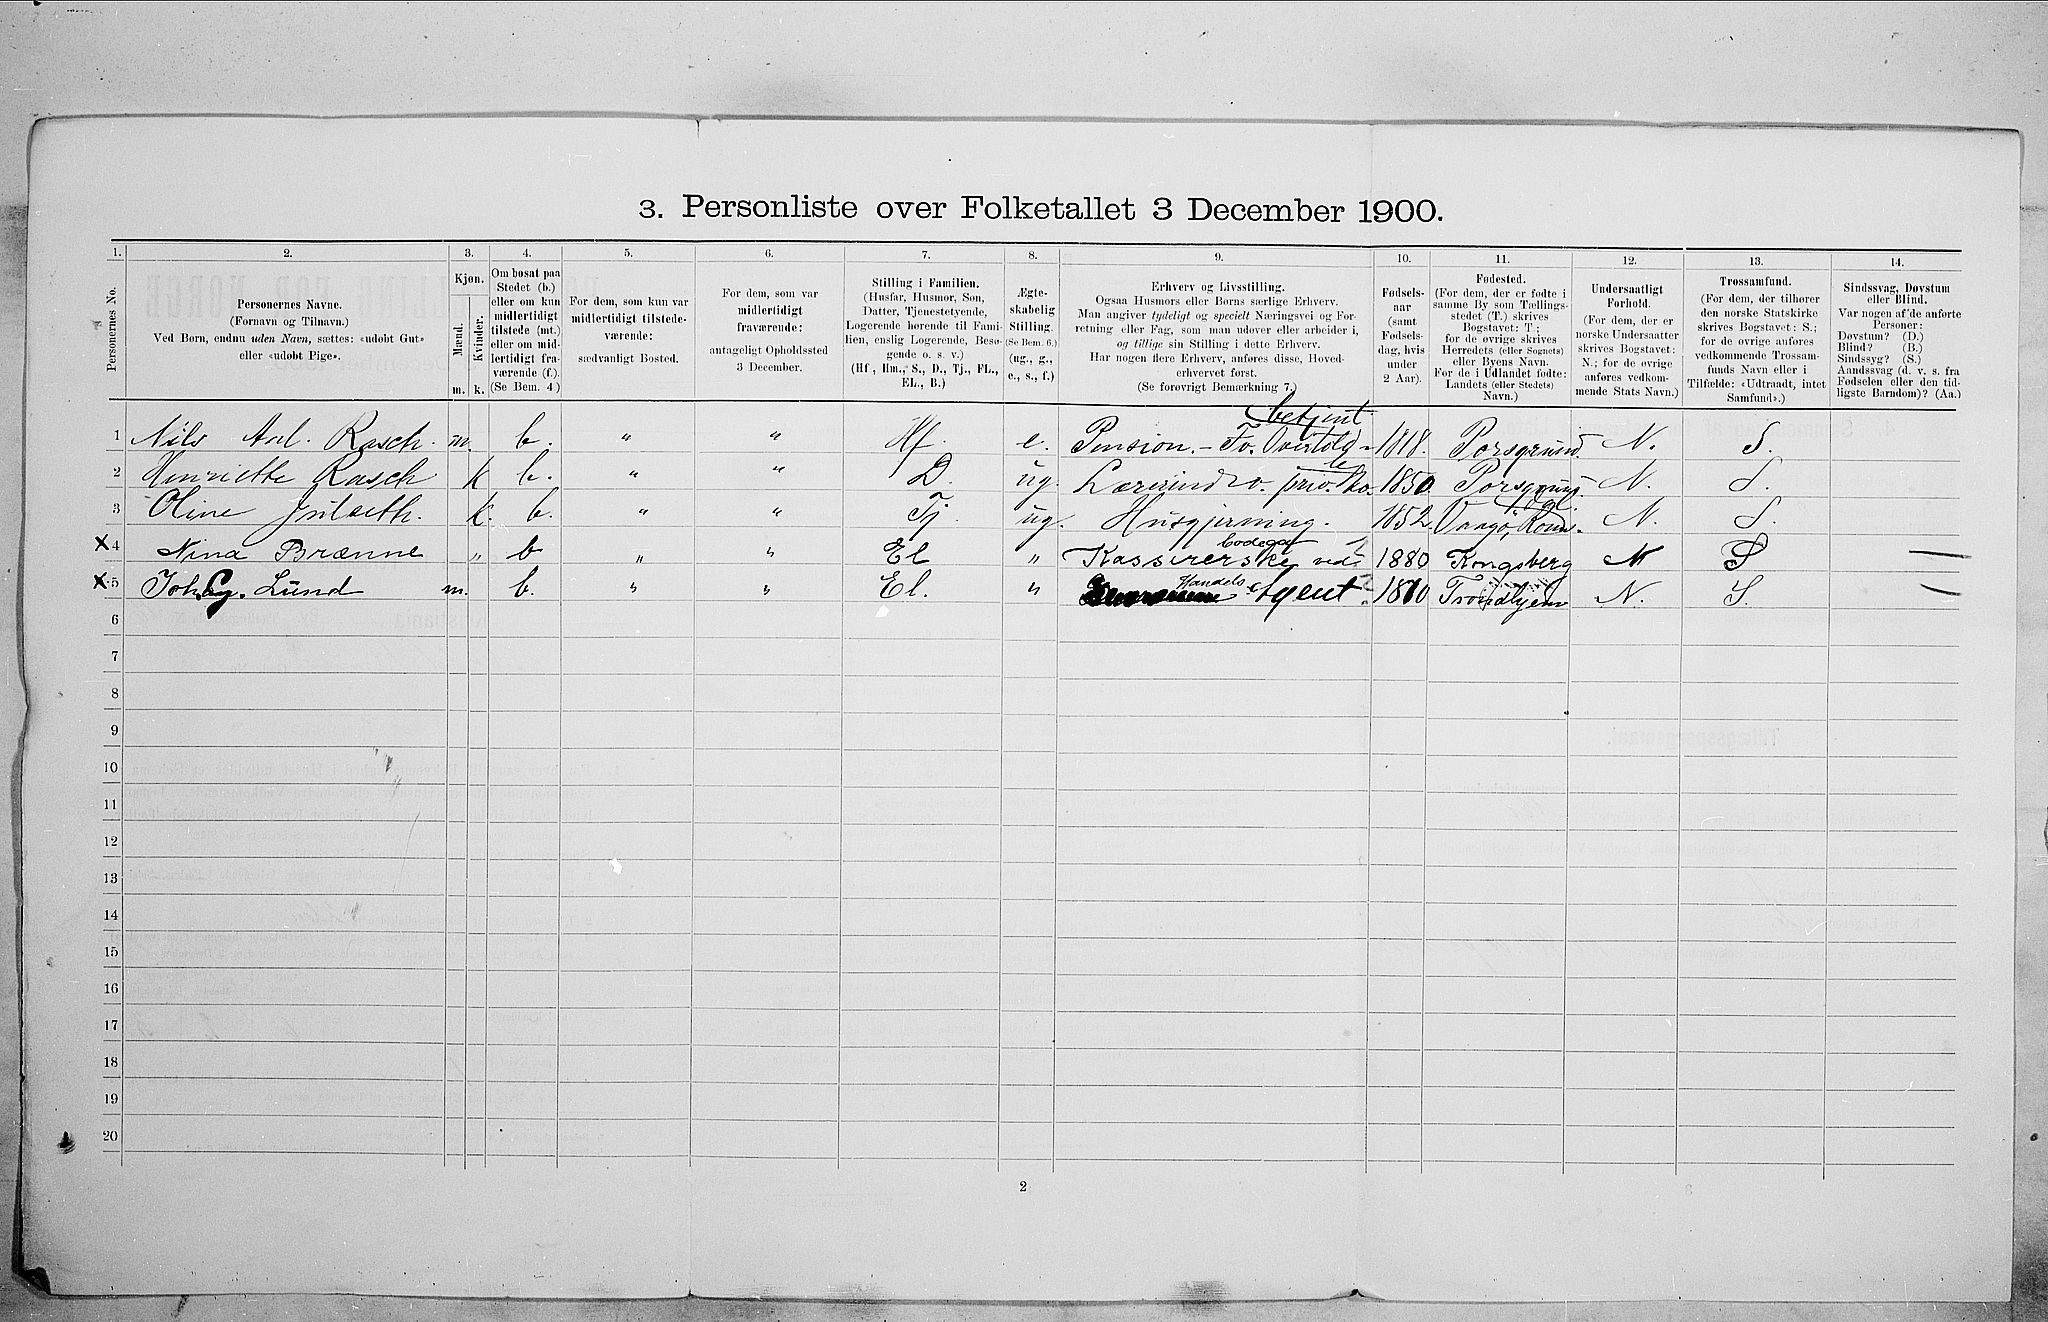 3. Personliste over Folketallet 3 December 1900.
1. 2. 3. 4. 5. 6. 7. 8. 9. 10. 11. 12. 13. 14.
Personernes No.
Personernes Navne.
(Fornavn og Tilnavn.)
Ved Børn, endnu uden Navn, sættes: «udøbt Gut»
eller «udøbt Pige».
Kjøn.
Mænd. Kvinder.
m. k.
Om bosat paa
Stedet (b.)
eller om kun
midlertidigt
tilstede (mt.)
eller om mid-
lertidigt fra-
værende (f.)
(Se Bem. 4.)
For dem, som kun var
midlertidigt tilstede-
værende:
sædvanligt Bosted.
For dem, som var
midlertidigt
fraværende:
antageligt Opholdssted
3 December.
Stilling i Familien.
(Husfar, Husmor, Søn,
Datter, Tjenestetyende,
Logerende hørende til Fami-
lien, enslig Logerende, Besø-
gende o. s. v.)
(Hf., Hm., S., D., Tj., FL.,
EL., B.)
Ægte-
skabelig
Stilling.
(Se Bem. 6.)
(ug., g.,
e., s., f.)
Erhverv og Livsstilling.
Ogsaa Husmors eller Børns særlige Erhverv.
Man angiver tydeligt og specielt Næringsvei og For-
retning eller Fag, som man udøver eller arbeider i,
og tillige sin Stilling i dette Erhverv.
Har nogen flere Erhverv, anføres disse, Hoved-
erhvervet først.
(Se forøvrigt Bemærkning 7.)
Fødsels-
aar
(samt
Fødsels-
dag, hvis
under
2 Aar).
Fødested.
(For dem, der er fødte i
samme By som Tællings-
stedet (T.) skrives
Bogstavet: T;
for de øvrige skrives
Herredets (eller Sognets)
eller Byens Navn.
For de i Udlandet fødte:
Landets (eller Stedets)
Navn.)
Undersaatligt
Forhold.
(For dem, der er
norske Undersaatter
skrives Bogstavet:
N.; for de øvrige
anføres vedkom-
mende Stats Navn.)
Trossamfund.
(For dem, der tilhører
den norske Statskirke
skrives Bogstavet: S.;
for de øvrige anføres
vedkommende Trossam-
funds Navn eller i
Tilfælde: «Udtraadt, intet
Samfund».)
Sindssvag, Døvstum
eller Blind.
Var nogen af de anførte
Personer:
Døvstum? (D.)
Blind? (B.)
Sindssyg? (S.)
Aandssvag (d. v. s. fra
Fødselen eller den tid-
ligste Barndom)? (Aa.)
betjent
1 Nils Rasch. m. b. " " Hf. e. Pension. – Fv. Overtold- 1818. Porsgrund. N. S.
2 Henriette Rasch k b. " " D. ug. priv. 1850. Porsgrund. N. S.
3 Oline k. b. " " Tj. ug. Husgjerning. 1852. N. S.
X 4 Nina Brænne " b " " El " Kassererske ved 1880 Kongsberg N S —
X 5 Joh. Lund m. b. " " El. " Handels Agent. Trondhjem N. S. —
6
7
8
9
10
11
12
13
14
15
16
17
18
19
20
2